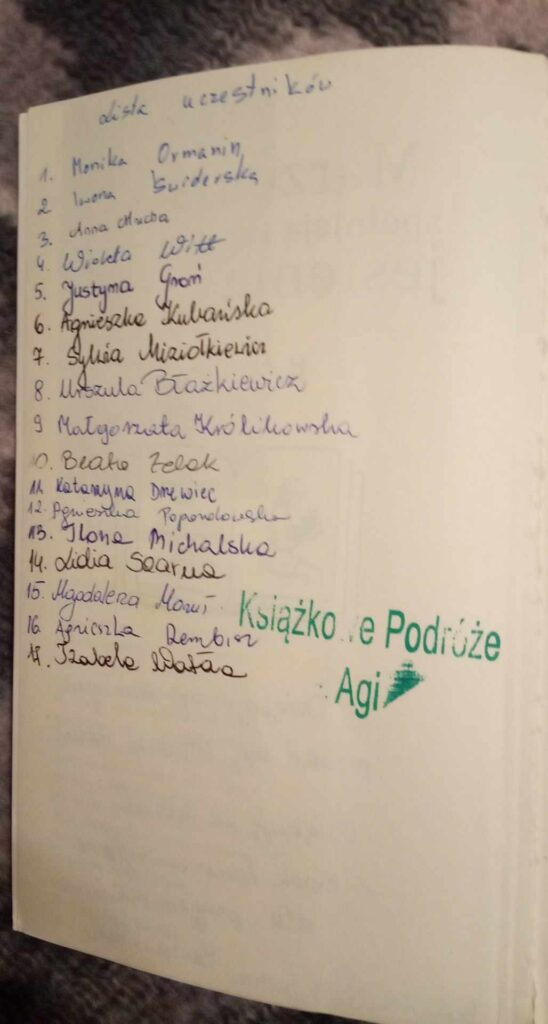 Lista uczestników
1. Monika Ormanin
2 Iwona Świderska
3. Anna Mucha
4. Wioleta Witt
5. Justyna Groń
6. Agnieszka Kubańska
7. Sylwia Miziołkiewicz
8. Urszula Błażkiewicz
9 Małgorzata Królikowska
10. Beata Zelek
11. Katarzyna Drzewiec
12. Agnieszka
13. Ilona Michalska
14. Lidia
15. Magdalena
16. Agnieszka Rembisz
17. Izabela
Książko e Podróże
Agi